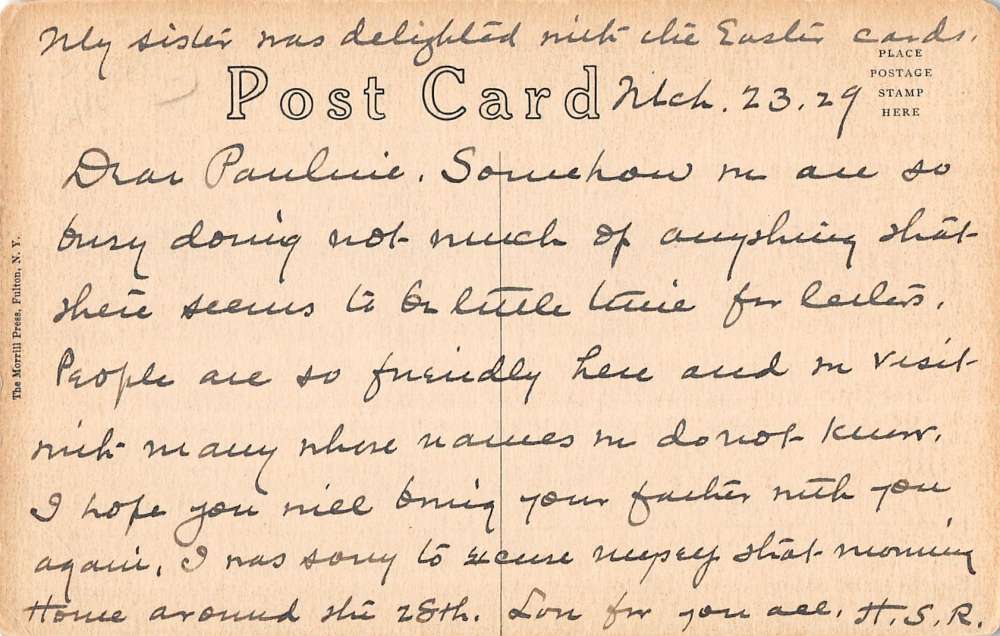 My sister was delighted with the Easter cards.
PLACE
POSTAGE
STAMP
HERE
Post Card
Mch. 23. 29
Dear Pauline. Somehow we are so
busy doing not much of anything that
there seems to be little time for letters.
People are so friendly here and we visit
with many whose names we do not know.
I hope you will bring your father with you
again. I was sorry to excuse myself that morning
Home around the 28th. Love for you all. H.S.R.
The Morrill Press, Fulton, N. Y.